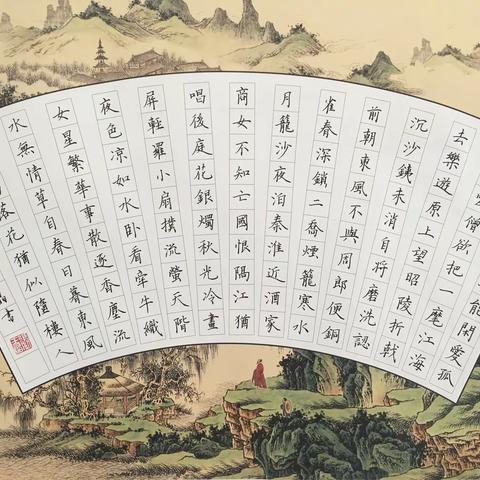 能閑愛孤
僧欲把一麾江海
去樂遊原上望昭陵折戟
沉沙銕未消自將磨洗認
前朝東風不與周郎便銅
雀春深鎖二喬煙籠寒水
月籠沙夜泊秦淮近酒家
商女不知亡國恨隔江猶
唱後庭花銀燭秋光冷畫
屏輕羅小扇撲流螢天階
夜色凉如水卧看牽牛織
女星繁華事散逐香塵流
水無情草自春日暮東風
落花猶似墜樓人
書